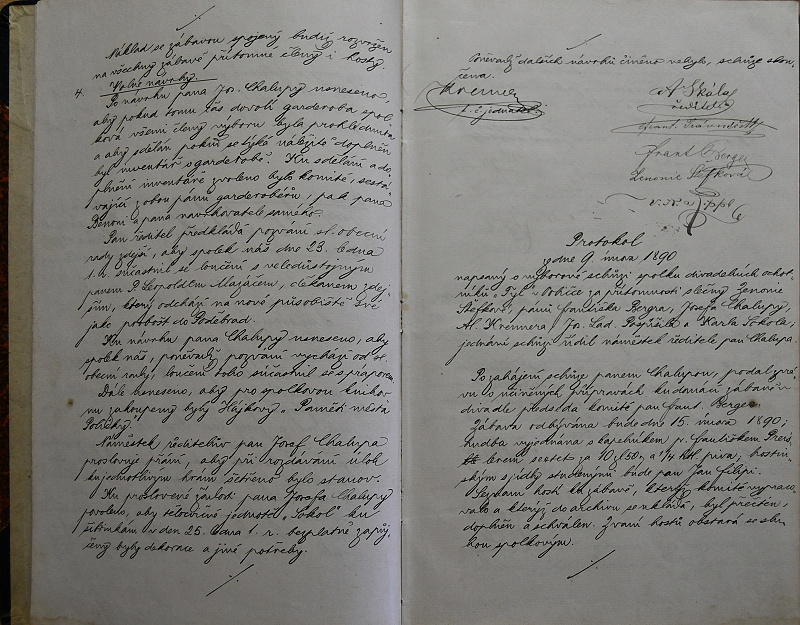 Náklad se zábavou spojený budiž rozvržen
na všechny zábavě přítomné členy i hosty.
4. Volné návrhy.
Po návrhu pana Jos. Chalupy usneseno,
aby pokud tomu čas dovolí garderoba spol-
ková všemi členy výboru byla prohlédnuta
a aby sdělán pokud se týká náležitě doplněn
byl inventář o garderobě. Ku sdělání a do-
plnění inventáře zvoleno bylo komité, sestá-
vající z obou pánů garderobérů, pak pana
Benoni a pana navrhovatele samého.
Pan ředitel předkládá pozvání sl. obecní
rady zdejší, aby spolek náš dne 23. ledna
t. r. súčastnil se loučení s veledůstojným
panem P. Leopoldem Mazáčem, děkanem zdej-
ším, který odchází na nové působiště své
jako probošt do Poděbrad.
Ku návrhu pana Chalupy usneseno, aby
spolek náš, poněvadž pozvání vychází od sl.
obecní rady, loučení toho súčastnil se s praporem.
Dále usneseno, aby pro spolkovou kniho-
vnu zakoupeny byly Hájkovy "Paměti města
Poličky".
Náměstek ředitelův pan Josef Chalupa
proslovuje přání, aby při rozdávání úloh
ku jednotlivým hrám šetřeno bylo stanov.
Ku proslovené žádosti pana Josefa Chalupy
povoleno, aby tělocvičné jednotě "Sokol" ku
šibřinkám v den 25. ledna t. r. bezplatně zapůj-
čeny byly dekorace a jiné potřeby.
Poněvadž dalších návrhů činěno nebylo, schůze skon-
čena.
Kremer
t. č. jednatel
A. Skála
ředitel
Frant. Berger
Zenonie Šefková
Protokol
ze dne 9. února 1890
napsaný o výborové schůzi spolku divadelních ochot-
níků "Tyl" v Poličce za přítomnosti slečny Zenonie
Šefkovy, pánů Františka Bergra, Josefa Chalupy,
Al. Kremera, Jos. Lad. Pospíšila a Karla Sokola;
jednání schůze řídil náměstek ředitele pan Chalupa.
Po zahájení schůze panem Chalupou, podal zprá-
vu o učiněných přípravách ku konání zábavě v
divadle předseda komité pan Frant. Berger.
Zábava odbývána bude dne 15. února 1890;
hudba vyjednána s kapelníkem p. Františkem Preis-
lerem sextet za 10 f. 50, a 1/4 htl. piva; hostin-
ským s jídly studenými bude pan Jan Filipi.
Seznam hostí ku zábavě, kterýž komité vypraco-
valo a kterýž do archivu se vkládá, byl přečten,
doplněn a schválen. Zvaní hostů obstará se slu-
hou spolkovým.